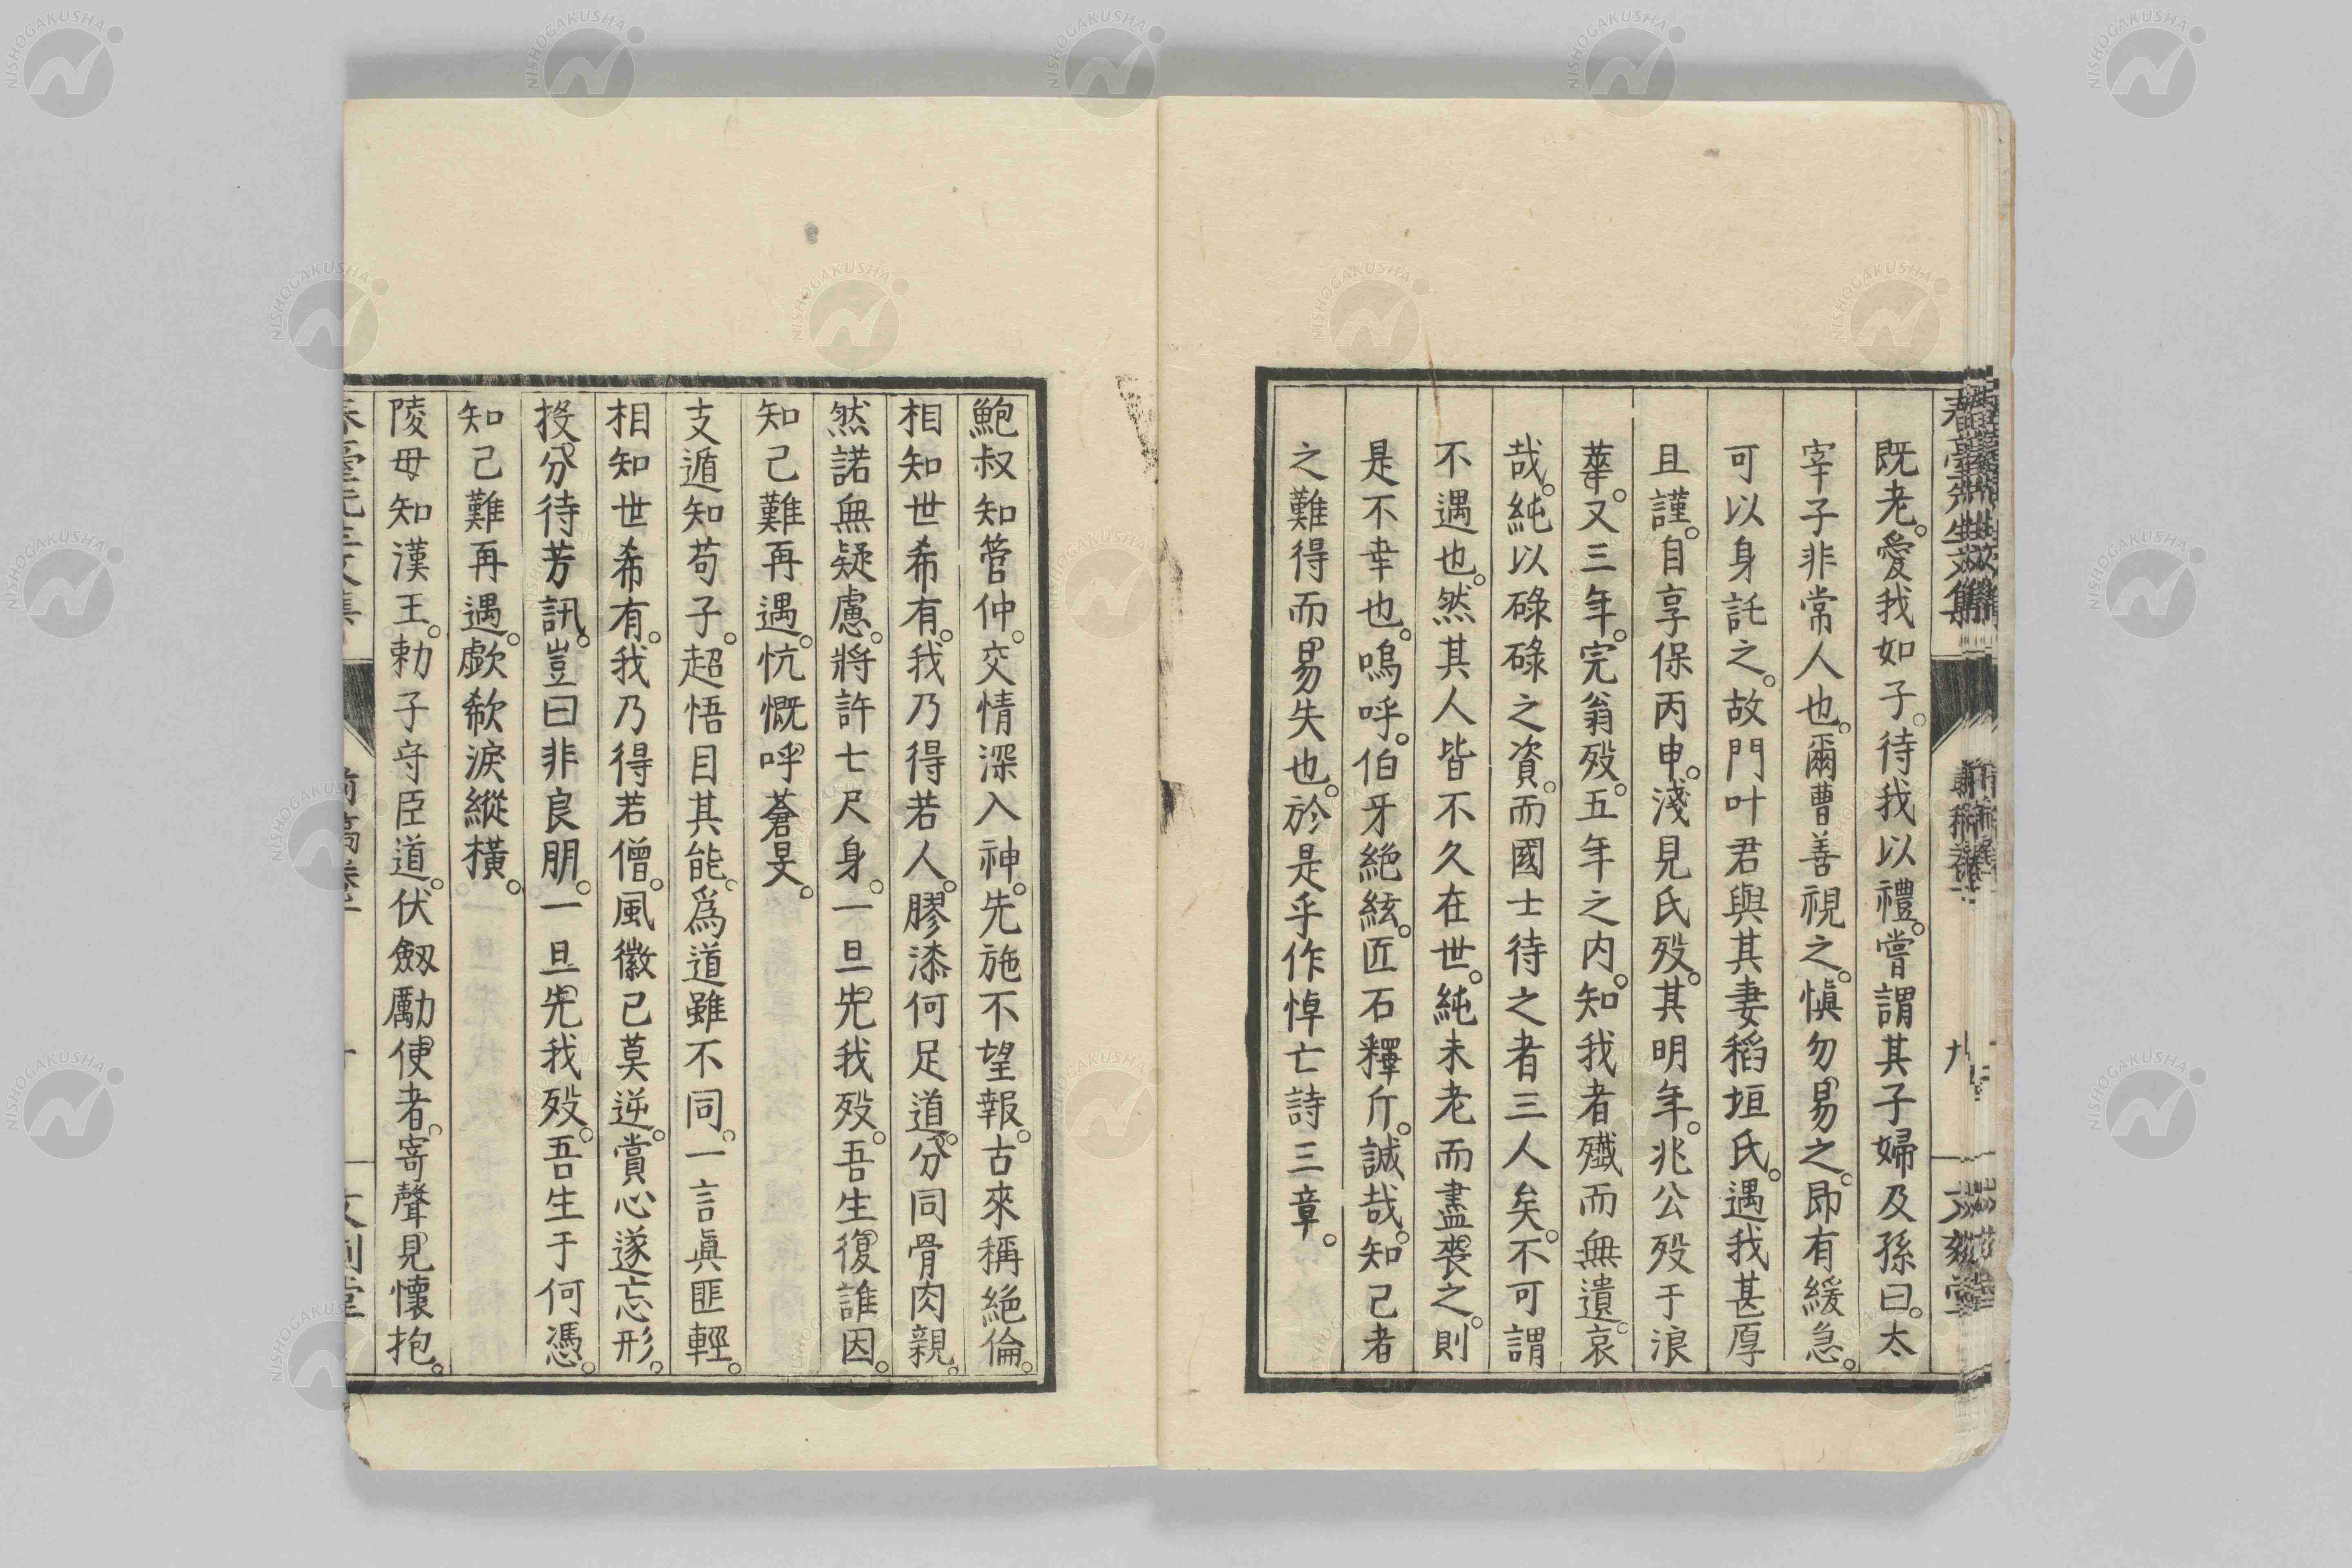 既老。愛我如子。待我以禮。嘗謂其子婦及孫曰。太
宰子非常人也。爾曹善視之。愼勿易之。即有緩急。
可以身託之。故門叶君與其妻稻垣氏。遇我甚厚
且謹。自享保丙申。淺見氏歿。其明年。兆公歿于浪
華。又三年。完翁歿。五年之内。知我者殲而無遺。哀
哉。純以碌碌之資。而國士待之者三人矣。不可謂
不遇也。然其人皆不久在世。純未老而盡喪之。則
是不幸也。嗚呼。伯牙絶絃。匠石釋斤。誠哉。知己者
之難得而易失也。於是乎作悼亡詩三章。
鮑叔知管仲。交情深入神。先施不望報。古來稱絶倫。
相知世希有。我乃得若人。膠漆何足道。分同骨肉親。
然諾無疑慮。將許七尺身。一旦先我歿。吾生復誰因。
知己難再遇。忼慨呼蒼旻。
支遁知苟子。超悟目其能。爲道雖不同。一言眞匪輕。
相知世希有。我乃得若僧。風徽已莫逆。賞心遂忘形。
投分待芳訊。豈曰非良朋。一旦先我歿。吾生于何憑。
知己難再遇。歔欷淚縱橫。
陵母知漢王。勅子守臣道。伏劔勵使者。寄聲見懷抱。
春臺先生文集
前稿卷
九
文刻堂
NISHOGAKUSHA